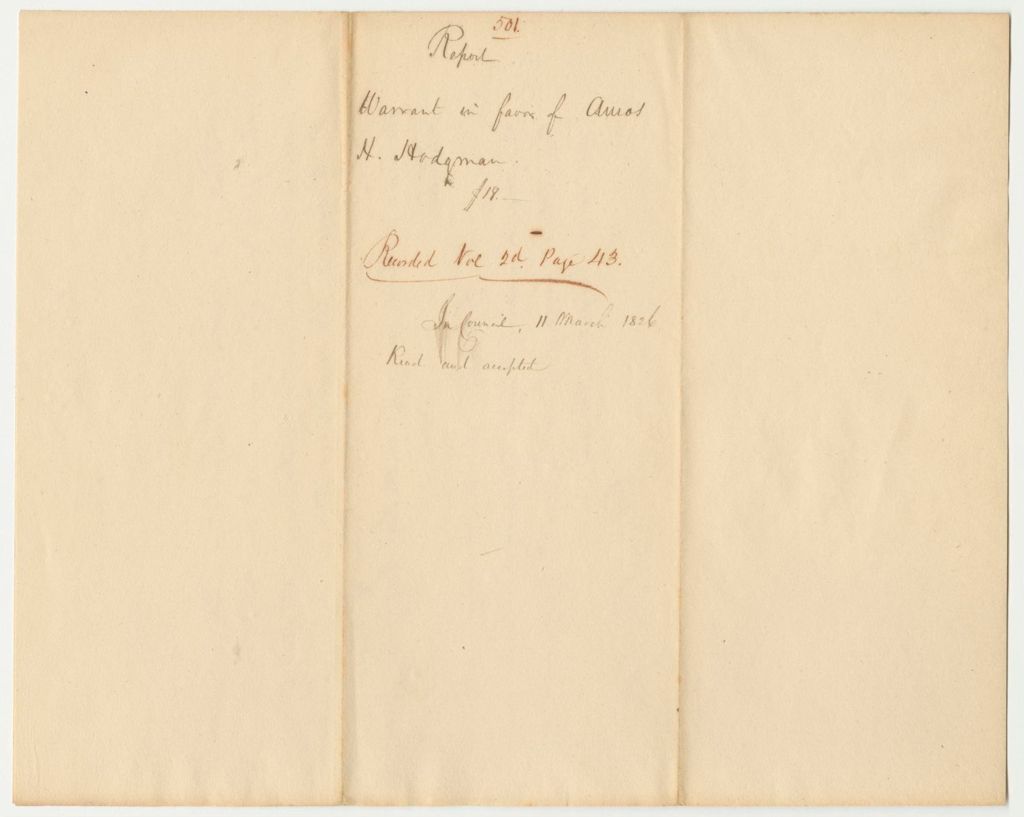 501.
Report
Warrant in favor of Amos
H. Hodgman.
$18.—
Recorded Vol 2d. Page 43.
In Council, 11 March 1826
Read and accepted